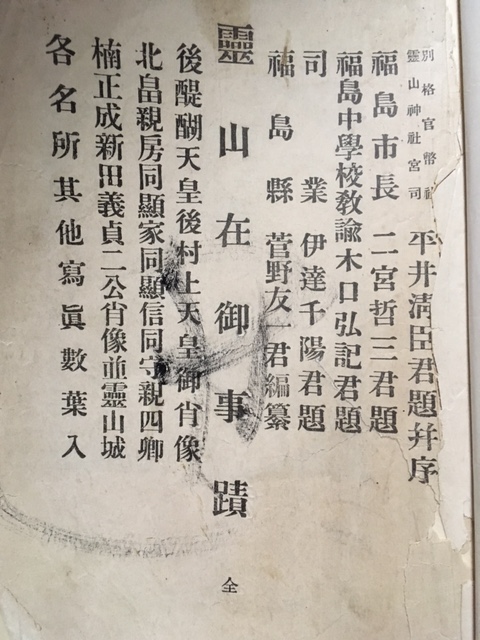 別格官幣社
靈山神社宮司
平井淸臣君題幷序
福島市長 二宮哲三君題
福島中學校敎諭木口弘記君題
司業 伊達千陽君題
福島縣 菅野友一君編纂
靈山在御事蹟 全
後醍醐天皇後村上天皇御肖像
北畠親房同顯家同顯信同守親四卿
楠正成新田義貞二公肖像並靈山城
各名所其他寫眞數葉入